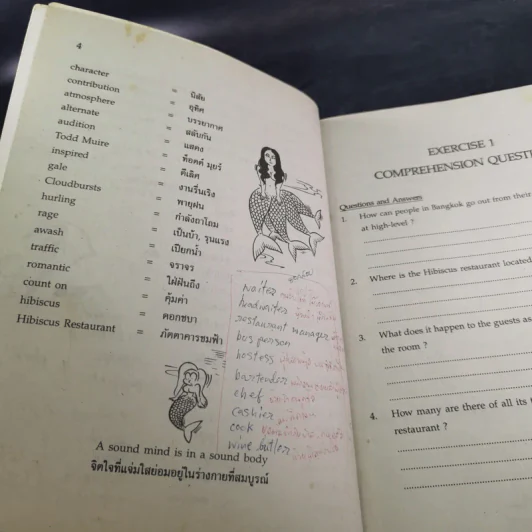 4
character = นิสัย
contribution = อุทิศ
atmosphere = บรรยากาศ
alternate = สลับกัน
audition = แสดง
Todd Muire = ท็อดด์ มุยร์
inspired = ดีเลิศ
gale = งานรื่นเริง
Cloudbursts = พายุฝน
hurling = กำลังถาโถม
rage = เป็นบ้า, รุนแรง
awash = เปียกน้ำ
traffic = จราจร
romantic = ใฝ่ฝันถึง
count on = คุ้มค่า
hibiscus = ดอกชบา
Hibiscus Restaurant = ภัตตาคารชมฟ้า
waiter
headwaiter
restaurant manager
bus person
hostess
bartender
chef
cashier
cook
wine butler
A sound mind is in a sound body
จิตใจที่แจ่มใสย่อมอยู่ในร่างกายที่สมบูรณ์
EXERCISE 1
COMPREHENSION QUESTI
Questions and Answers
1. How can people in Bangkok go out from their
at high-level ?
2. Where is the Hibiscus restaurant located
3. What does it happen to the guests as
the room ?
4. How many are there of all its
restaurant ?